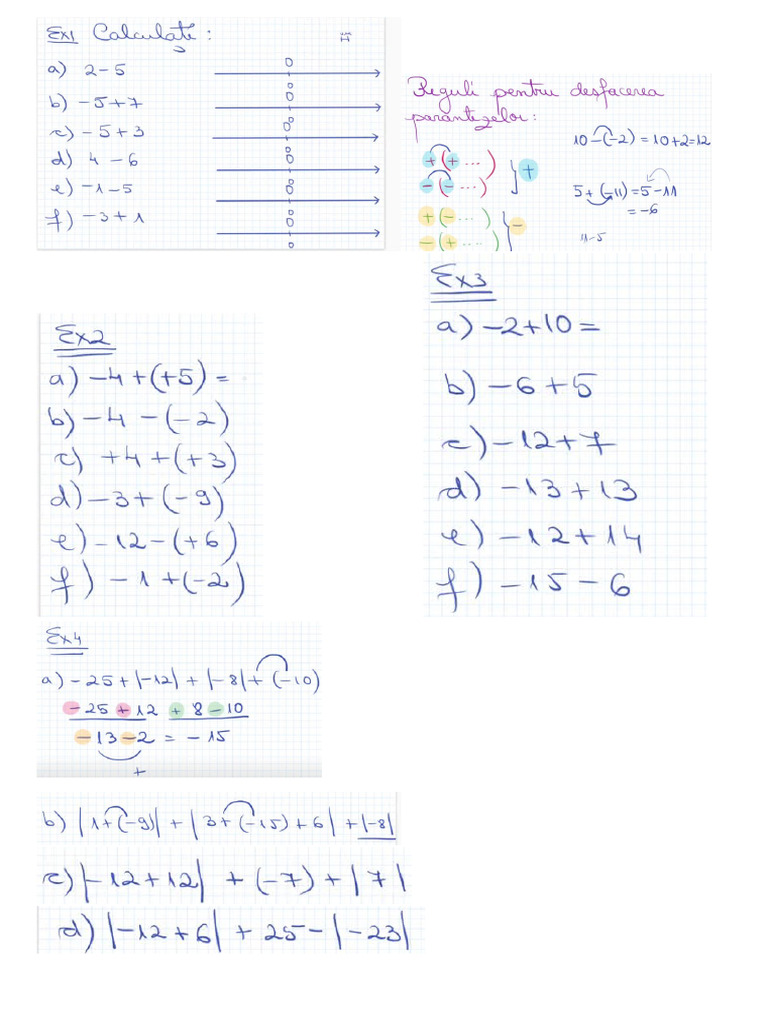 Ex1 Calculați:
a) 2-5
b) -5+7
c) -5+3
d) 4-6
e) -1-5
f) -3+1
0
0
0
0
0
0
0
0
0
0
0
0
Reguli pentru desfacerea
parantezelor:
+(+...)
-(-...)
+
+(-...)
-(+....)
-
10-(-2)=10+2=12
5+(-11)=5-11
=-6
11-5
Ex2
a) -4+(+5)=
b) -4-(-2)
c) +4+(+3)
d) -3+(-9)
e) -12-(+6)
f) -1+(-2)
Ex3
a) -2+10=
b) -6+5
c) -12+7
d) -13+13
e) -12+14
f) -15-6
Ex4
a) -25+|-12|+|-8|+(-10)
-25+12 +8-10
-13-2=-15
+
b) |1+(-9)|+|3+(-15)+6|+|-8|
c) |-12+12|+(-7)+|7|
d) |-12+6|+25-|-23|